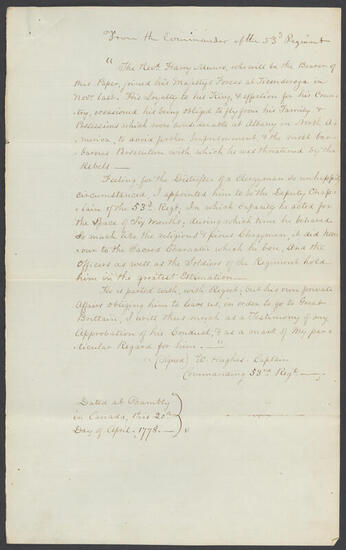 From the Commander of the 53d Regiment
"The Revd. Harry Munro, who will be the Bearer of
this Paper, joined his Majesty's Forces at Ticonderoga in
Novr. last. His Loyalty to his King, & affection for his Coun-
try, occasioned his being obliged to fly from his Family &
Possessions which were considerable at Albany in North A-
merica, to avoid further Imprisonment, & the most bar-
barous Prosecution with which he was threatened by the
Rebels —
Feeling for the Distresses of a Clergyman so unhappily
circumstanced, I appointed him to be the Deputy Chap-
lain of the 53d. Regt. In which capacity he acted for
the Space of Six Months, during which time he behaved
so much like the religious & pious Clergyman, as did Hon-
our to the Sacred Character which he bore, And the
Officers as well as the Soldiers of the Regiment hold
him in the greatest Estimation —
He is parted with, with Regret, but his own private
Affairs obliging him to leave us, in order to go to Great
Brittain, I write thus much as a Testimony of my
Approbation of his Conduct, & as a mark of My par-
ticular Regard for him. —"
(Signed) W. Hughes, Captain
Commanding 53rd Regt —
Dated at Chambly
in Canada, this 20th
Day of April. 1778.